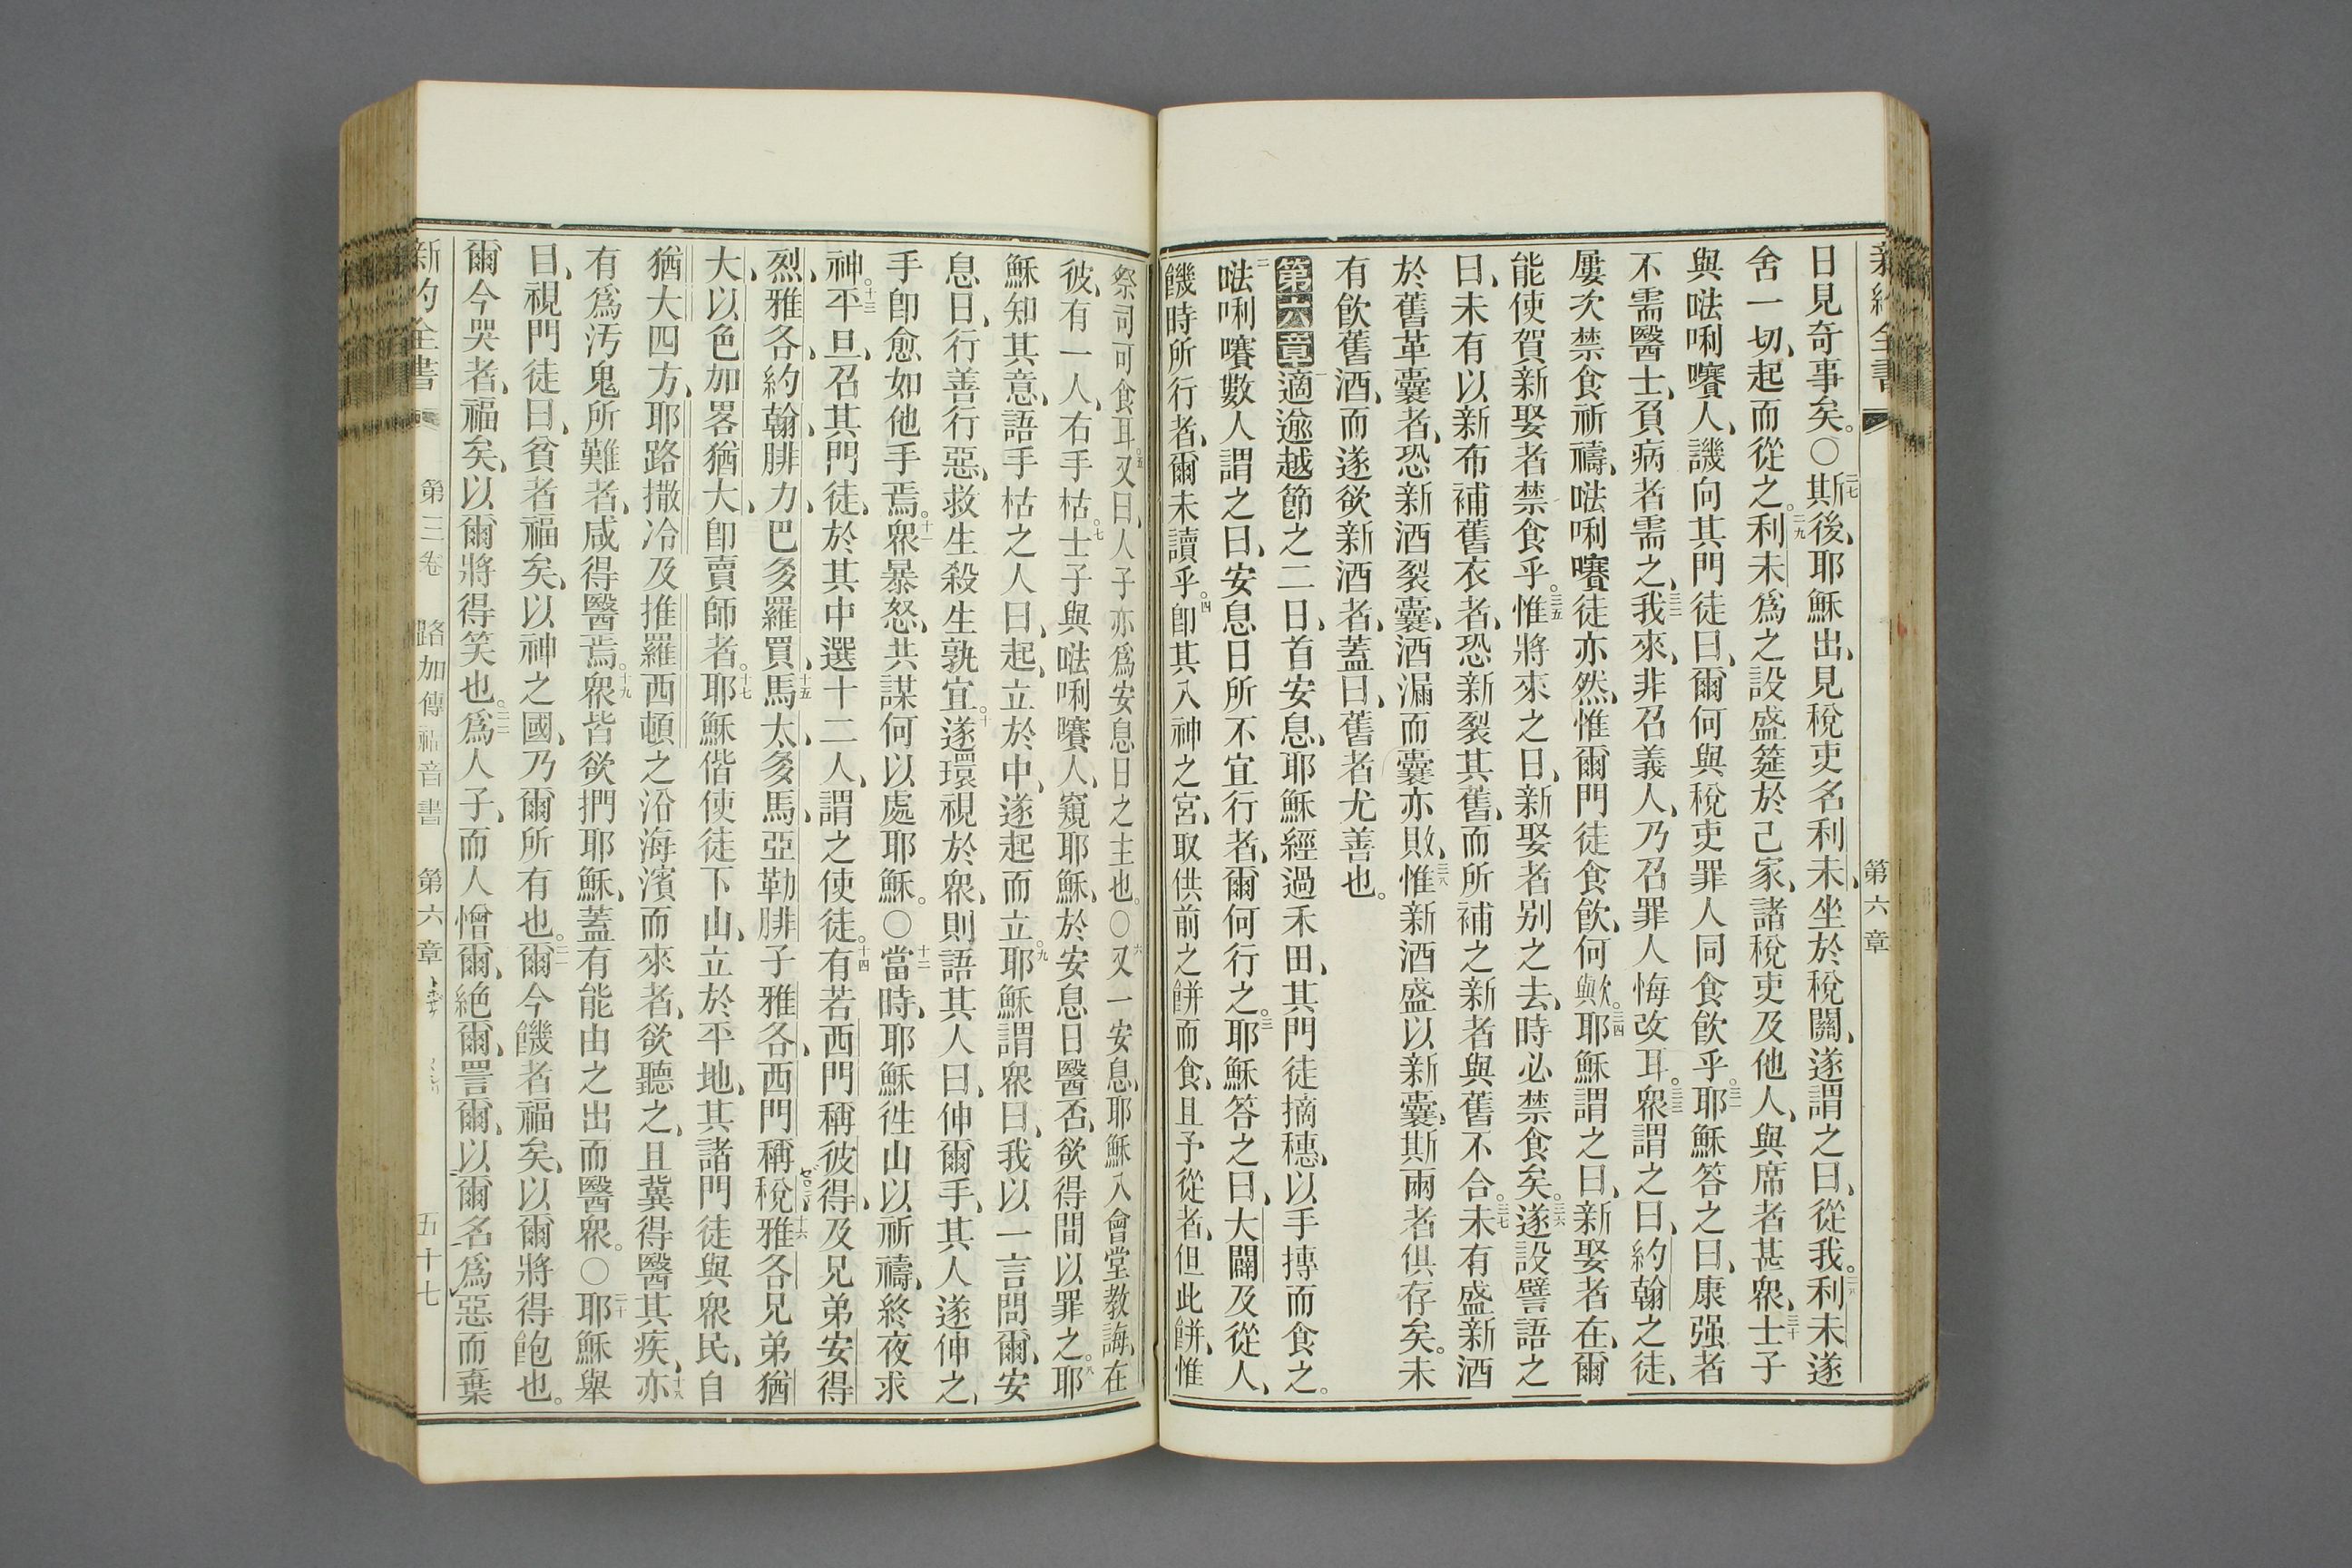 新約全書
第六章
日見奇事矣。〇二七斯後、耶穌出、見稅吏名利未、坐於稅關、遂謂之曰、從我。二八利未遂
舍一切、起而從之。二九利未爲之設盛筵於己家、諸稅吏及他人、與席者甚衆、三十士子
與㗲唎㘔人、譏向其門徒曰、爾何與稅吏罪人同食飲乎。三一耶穌答之曰、康强者
不需醫士、負病者需之、三二我來、非召義人、乃召罪人悔改耳。三三衆謂之曰、約翰之徒、
屢次禁食祈禱、㗲唎㘔徒亦然、惟爾門徒食飲、何歟。三四耶穌謂之曰、新娶者在、爾
能使賀新娶者禁食乎。三五惟將來之日、新娶者别之去、時必禁食矣。三六遂設譬語之
曰、未有以新布補舊衣者、恐新裂其舊、而所補之新者與舊不合。三七未有盛新酒
於舊革囊者、恐新酒裂囊、酒漏而囊亦敗、三八惟新酒盛以新囊、斯兩者俱存矣。未
有飲舊酒、而遂欲新酒者、蓋曰、舊者尤善也。
第六章一適逾越節之二日、首安息、耶穌經過禾田、其門徒摘穗、以手摶而食之。
二㗲唎㘔數人謂之曰、安息日所不宜行者、爾何行之。三耶穌答之曰、大闢及從人、
饑時所行者、爾未讀乎。四卽其入神之宮、取供前之餅而食、且予從者、但此餅、惟
祭司可食耳。五又曰、人子亦爲安息日之主也。〇六又一安息、耶穌入會堂敎誨、在
彼、有一人、右手枯。七士子與㗲唎㘔人、窺耶穌、於安息日醫否、欲得間以罪之。八耶
穌知其意、語手枯之人曰、起、立於中、遂起而立。九耶穌謂衆曰、我以一言問爾、安
息日、行善行惡、救生殺生孰宜。十遂環視於衆、則語其人曰、伸爾手、其人遂伸之、
手卽愈如他手焉。十一衆暴怒、共謀何以處耶穌。〇十二當時、耶穌徃山以祈禱、終夜求
神。十三平旦、召其門徒、於其中選十二人、謂之使徒。十四有若西門稱彼得、及兄弟安得
烈、雅各、約翰、腓力、巴多羅買、十五馬太、多馬、亞勒腓子雅各、西門稱稅、十六雅各兄弟猶
大、以色加畧猶大、卽賣師者。十七耶穌偕使徒下山、立於平地、其諸門徒與衆民、自
猶大四方、耶路撒冷及推羅西頓之沿海濱而來者、欲聽之、且冀得醫其疾、十八亦
有爲汚鬼所難者、咸得醫焉。十九衆皆欲捫耶穌、蓋有能由之出而醫衆。〇二十耶穌舉
目、視門徒曰、貧者福矣、以神之國、乃爾所有也。二一爾今饑者福矣、以爾將得飽也。
爾今哭者、福矣、以爾將得笑也。二二爲人子、而人憎爾、絕爾、詈爾、以爾名爲惡而棄
新約全書 第三卷 路加傳福音書 第六章 五十七